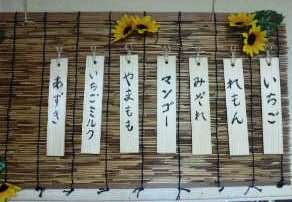 いちご
れもん
みぞれ
マンゴー
やまもも
いちごミルク
あずき